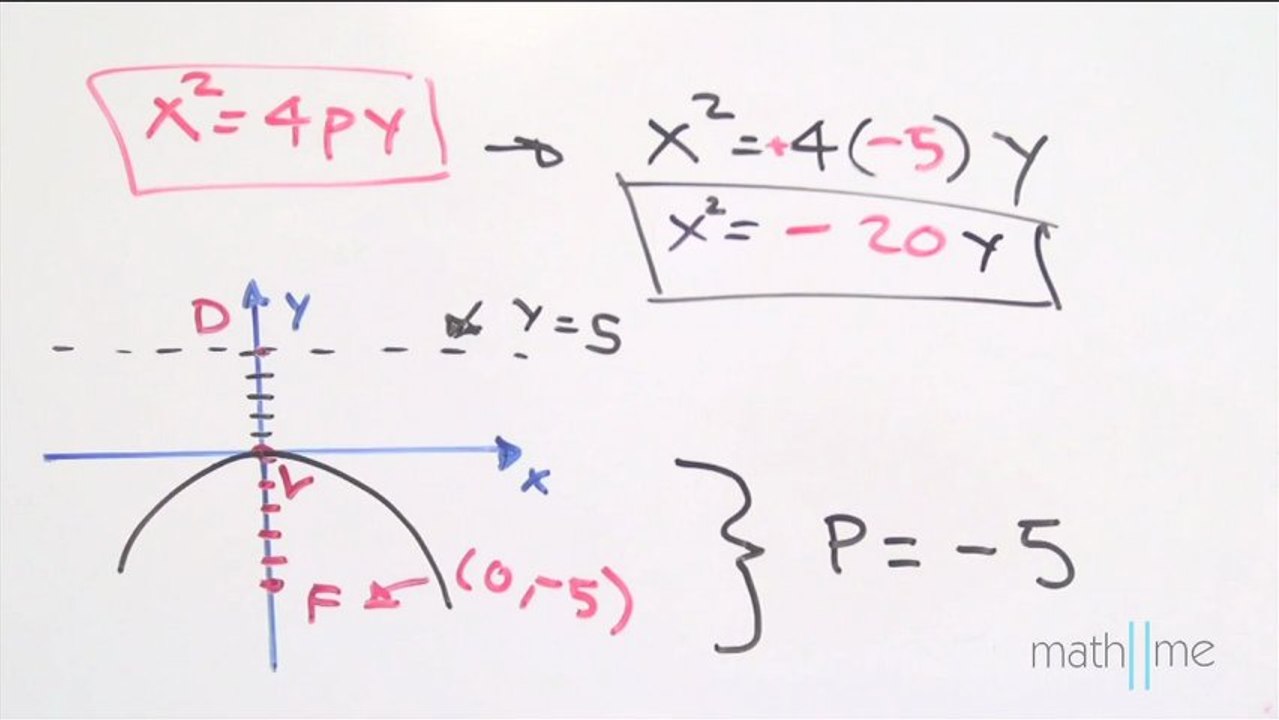 x² = 4py
x² = +4(-5)y
x² = -20y
D
y
y = 5
V
x
F
(0,-5)
P = -5
math||me